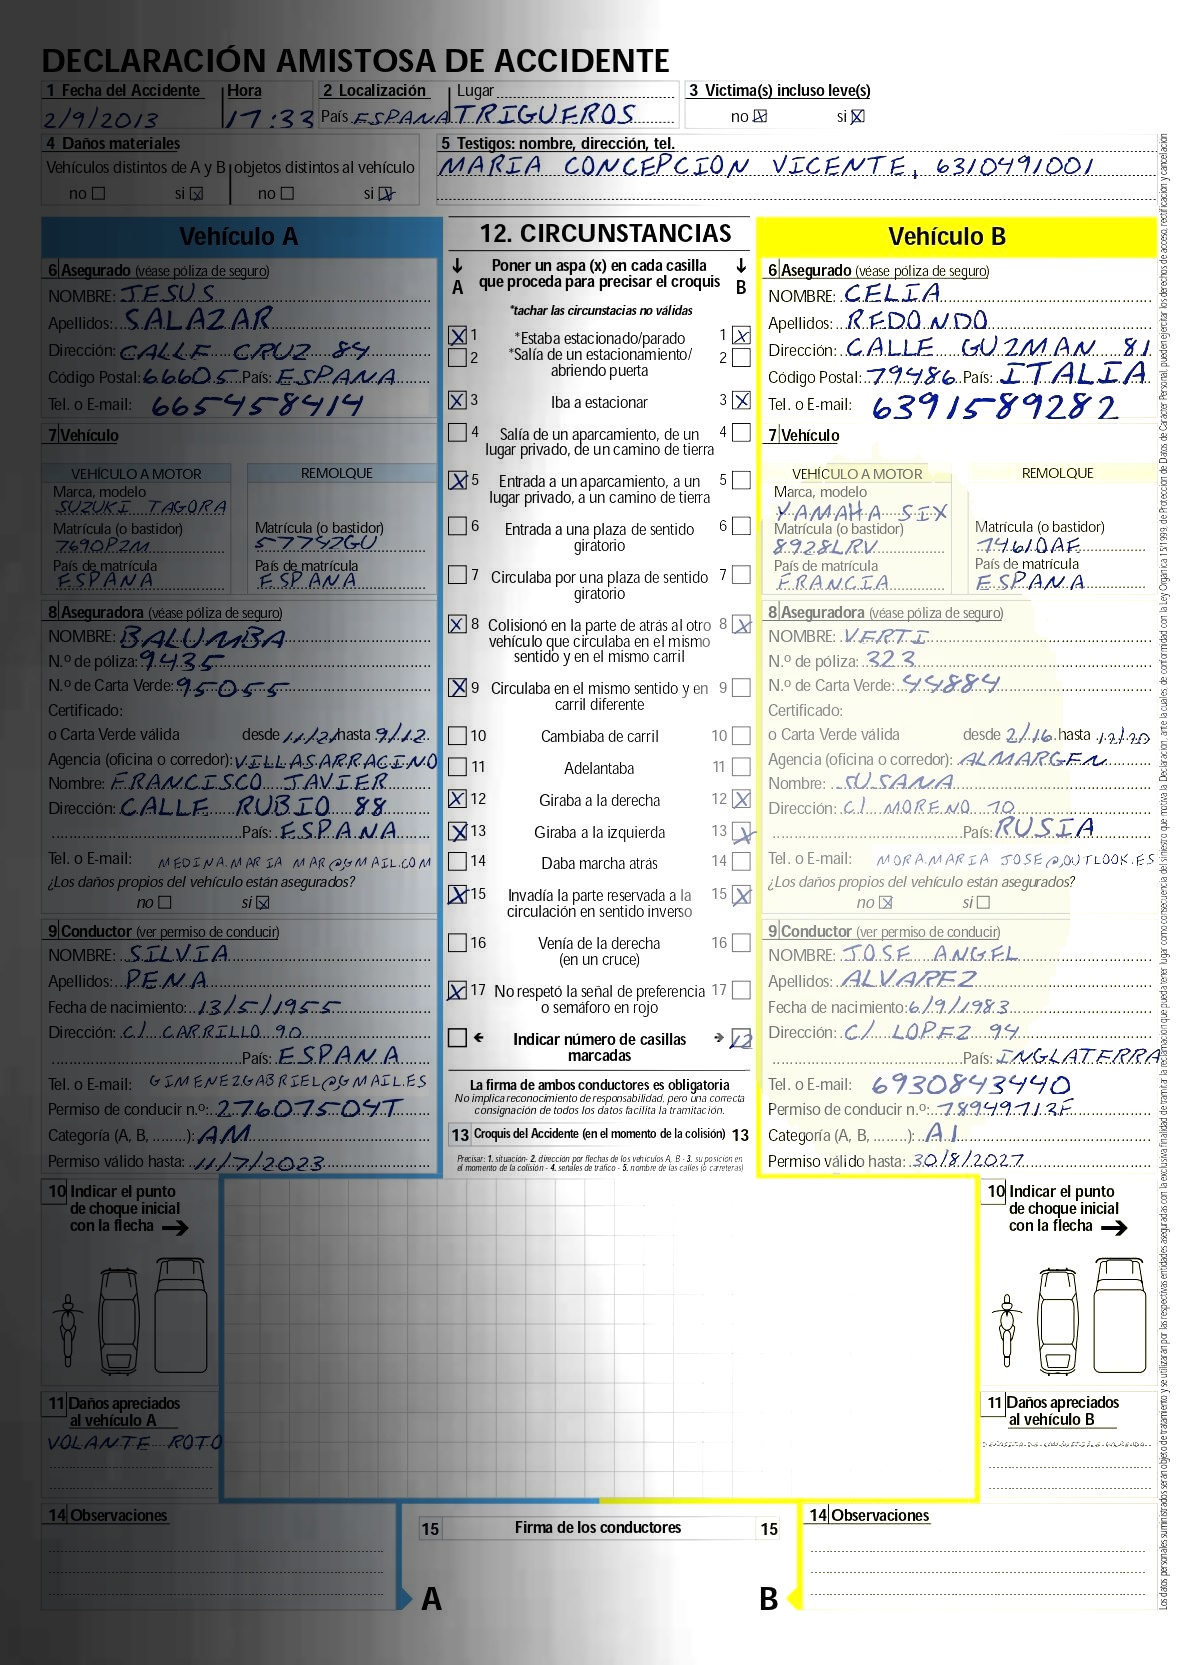 DECLARACIÓN AMISTOSA DE ACCIDENTE
1 Fecha del Accidente Hora 2 Localización Lugar 3 Victima(s) incluso leve(s)
2/9/2013 17:33 País ESPANA TRIGUEROS no si
4 Daños materiales 5 Testigos: nombre, dirección, tel.
Vehículos distintos de A y B objetos distintos al vehículo MARIA CONCEPCION VICENTE, 6310491001
no si no si
Vehículo A
6 Asegurado (véase póliza de seguro)
NOMBRE: JESUS
Apellidos: SALAZAR
Dirección: CALLE CRUZ 84
Código Postal: 66605 País: ESPANA
Tel. o E-mail: 665458414
7 Vehículo
VEHÍCULO A MOTOR REMOLQUE
Marca, modelo
SUZUKI TAGORA
Matrícula (o bastidor) Matrícula (o bastidor)
7690PZM 57742GU
País de matrícula País de matrícula
ESPANA ESPANA
8 Aseguradora (véase póliza de seguro)
NOMBRE: BALUMBA
N.º de póliza: 9435
N.º de Carta Verde: 95055
Certificado:
o Carta Verde válida desde 11/21 hasta 9/12
Agencia (oficina o corredor): VILLASARRACINO
Nombre: FRANCISCO JAVIER
Dirección: CALLE RUBIO 88
País: ESPANA
Tel. o E-mail: MEDINA.MARIA MAR@GMAIL.COM
¿Los daños propios del vehículo están asegurados?
no si
9 Conductor (ver permiso de conducir)
NOMBRE: SILVIA
Apellidos: PENA
Fecha de nacimiento: 13/5/1955
Dirección: C/ CARRILLO 90
País: ESPANA
Tel. o E-mail: GIMENEZGABRIEL@GMAIL.ES
Permiso de conducir n.º: 27607504T
Categoría (A, B, ........): AM
Permiso válido hasta: 11/7/2023
10 Indicar el punto
de choque inicial
con la flecha
11 Daños apreciados
al vehículo A
VOLANTE ROTO
14 Observaciones
12. CIRCUNSTANCIAS
Poner un aspa (x) en cada casilla
A que proceda para precisar el croquis B
*tachar las circunstacias no válidas
1 *Estaba estacionado/parado 1
2 *Salía de un estacionamiento/ 2
abriendo puerta
3 Iba a estacionar 3
4 Salía de un aparcamiento, de un 4
lugar privado, de un camino de tierra
5 Entrada a un aparcamiento, a un 5
lugar privado, a un camino de tierra
6 Entrada a una plaza de sentido 6
giratorio
7 Circulaba por una plaza de sentido 7
giratorio
8 Colisionó en la parte de atrás al otro 8
vehículo que circulaba en el mismo
sentido y en el mismo carril
9 Circulaba en el mismo sentido y en 9
carril diferente
10 Cambiaba de carril 10
11 Adelantaba 11
12 Giraba a la derecha 12
13 Giraba a la izquierda 13
14 Daba marcha atrás 14
15 Invadía la parte reservada a la 15
circulación en sentido inverso
16 Venía de la derecha 16
(en un cruce)
17 No respetó la señal de preferencia 17
o semáforo en rojo
Indicar número de casillas 12
marcadas
La firma de ambos conductores es obligatoria
No implica reconocimiento de responsabilidad, pero una correcta
consignación de todos los datos facilita la tramitación.
13 Croquis del Accidente (en el momento de la colisión) 13
Precisar: 1. situación- 2. dirección por flechas de los vehículos A, B - 3. su posición en
el momento de la colisión - 4. señales de tráfico - 5. nombre de las calles (o carreteras)
15 Firma de los conductores 15
A B
Vehículo B
6 Asegurado (véase póliza de seguro)
NOMBRE: CELIA
Apellidos: REDONDO
Dirección: CALLE GUZMAN 81
Código Postal: 79486 País: ITALIA
Tel. o E-mail: 6391589282
7 Vehículo
VEHÍCULO A MOTOR REMOLQUE
Marca, modelo
YAMAHA SIX
Matrícula (o bastidor) Matrícula (o bastidor)
8928LRV 7461DAE
País de matrícula País de matrícula
FRANCIA ESPANA
8 Aseguradora (véase póliza de seguro)
NOMBRE: VERTI
N.º de póliza: 323
N.º de Carta Verde: 44884
Certificado:
o Carta Verde válida desde 2/16 hasta 12/20
Agencia (oficina o corredor): ALMARGEN
Nombre: SUSANA
Dirección: C/ MORENO 70
País: RUSIA
Tel. o E-mail: MORA.MARIA JOSE@OUTLOOK.ES
¿Los daños propios del vehículo están asegurados?
no si
9 Conductor (ver permiso de conducir)
NOMBRE: JOSE ANGEL
Apellidos: ALVAREZ
Fecha de nacimiento: 6/9/1983
Dirección: C/ LOPEZ 94
País: INGLATERRA
Tel. o E-mail: 6930843440
Permiso de conducir n.º: 78949713F
Categoría (A, B, ........): A1
Permiso válido hasta: 30/8/2027
10 Indicar el punto
de choque inicial
con la flecha
11 Daños apreciados
al vehículo B
14 Observaciones